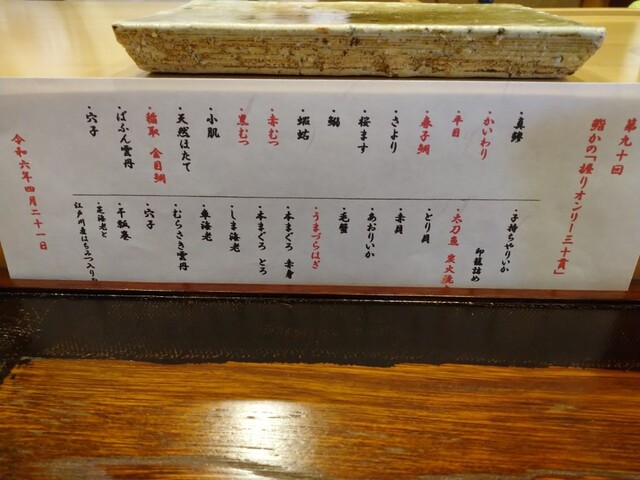 第九十回
鮨かの「握りオンリー三十貫」
・真鯵
・かいわり
・平目
・春子鯛
・さより
・桜ます
・鰯
・蝦蛄
・赤むつ
・黒むつ
・小肌
・天然ほたて
・稲取 金目鯛
・ばふん雲丹
・穴子
・子持ちやりいか
印籠詰め
・太刀魚 炭火焼
・とり貝
・赤貝
・あおりいか
・毛蟹
・うまづらはぎ
・本まぐろ 赤身
・本まぐろ とろ
・しま海老
・車海老
・むらさき雲丹
・穴子
・干瓢巻
・芝海老と
江戸川産はちみつ入り
令和六年四月二十一日